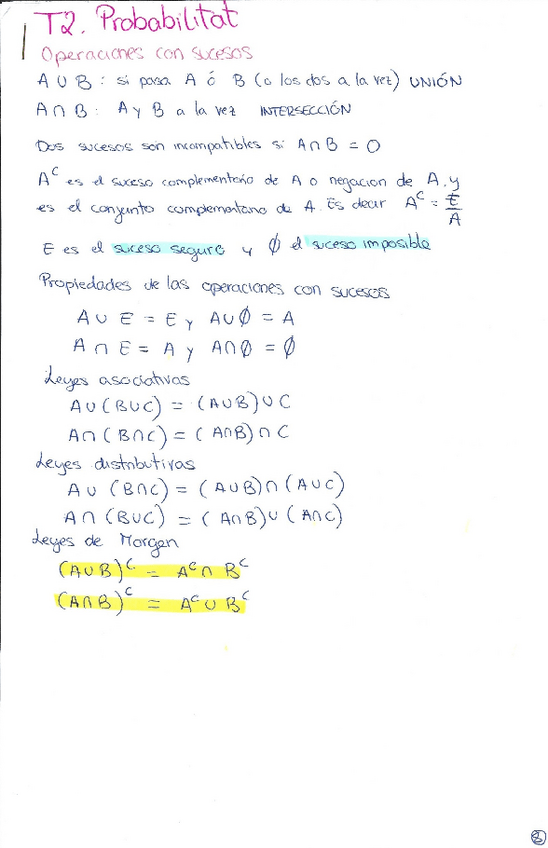 T2. Probabilitat
Operaciones con sucesos
A ∪ B : si pasa A ó B (o los dos a la vez) UNIÓN
A ∩ B : A y B a la vez INTERSECCIÓN
Dos sucesos son incompatibles si A ∩ B = O
A^c es el suceso complementario de A o negacion de A. y
es el conjunto complementario de A. Es decir A^c = E/A
E es el suceso seguro y ∅ el suceso imposible
Propiedades de las operaciones con sucesos
A ∪ E = E y A∪∅ = A
A ∩ E = A y A∩∅ = ∅
Leyes asociativas
A∪(B∪C) = (A∪B)∪C
A∩(B∩C) = (A∩B)∩C
Leyes distributivas
A∪(B∩C) = (A∪B)∩(A∪C)
A∩(B∪C) = (A∩B)∪(A∩C)
Leyes de Morgan
(A∪B)^c = A^c ∩ B^c
(A∩B)^c = A^c ∪ B^c
8